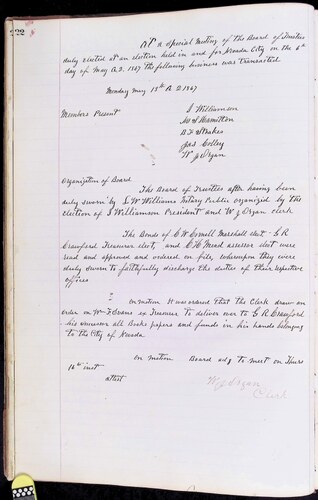 222
At a Special Meeting of the Board of Trustees
duly elected at an election held in and for Nevada City on the 6th
day of May A.D. 1867 the following business was transacted
Monday May 13th A D 1867
Members Present
J Williamson
M S Hamilton
D F Stokes
Jas Colley
W J Organ
Organization of Board
The Board of Trustees after having been
duly sworn by S. W Williams Notary Public organized by the
election of J Williamson President and W J Organ clerk
The Bonds of C W Cornell Marshall elect - G R
Crawford Treasurer elect, and C H Mead assessor elect were
read and approved and ordered on file, whereupon they were
duly sworn to faithfully discharge the duties of their respective
offices
On motion it was ordered that the Clerk draw an
order on Wm F Evans ex Treasurer to deliver over to G R Crawford
his successor all Books papers and funds in his hands belonging
to the City of Nevada
On motion Board adj to meet on Thurs
16th inst
attest
W J Organ
Clerk